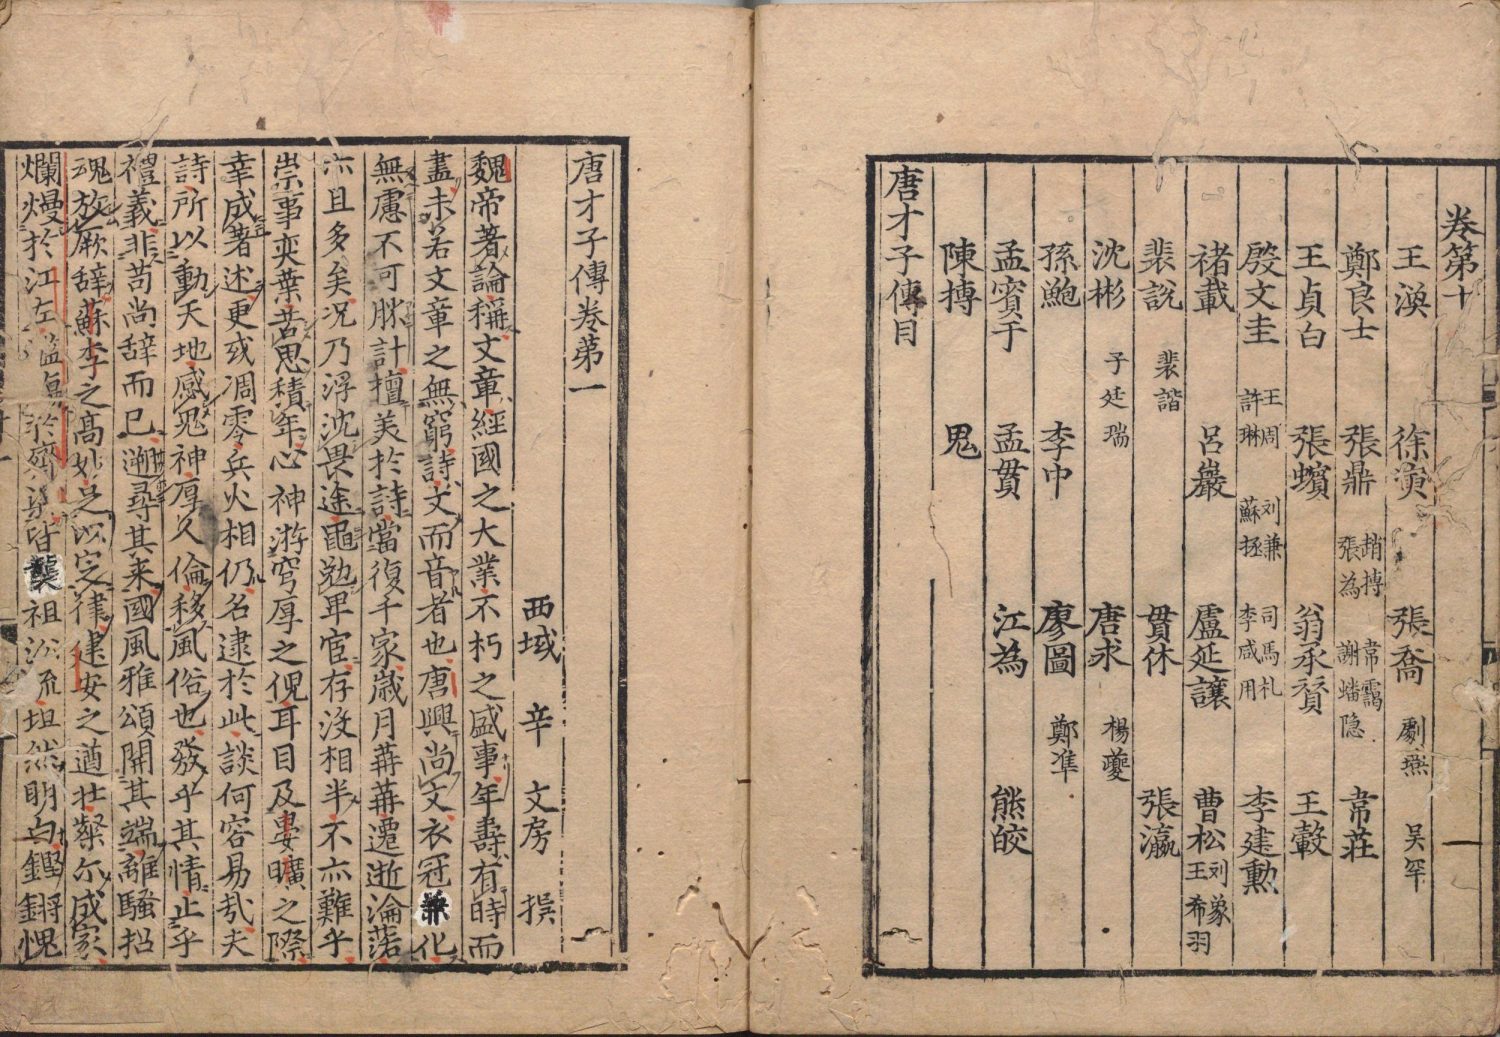 卷第十
王渙 徐演 張喬 劇燕 吴罕
鄭良士 張鼎 趙摶 張為 韋靄 謝蟠隐 韋莊
王貞白 張蠙 翁承賛 王轂
殷文圭 王周 許琳 刘兼 蘇拯 司馬札 李咸用 李建勲
禇載 呂巖 盧延讓 曹松 刘象 王希羽
裴說 裴諧 貫休 張瀛
沈彬 子廷瑞 唐求 楊夔
孫鲂 李中 廖圖 鄭准
孟賓于 孟貫 江為 熊皎
陳摶 鬼
唐才子傳目
唐才子傳卷第一
西域 辛 文房 撰
魏帝著論稱文章經國之大業不朽之盛事年壽有時而
盡未若文章之無窮詩文而音者也唐興尚文衣冠兼化
無慮不可勝計擅美於詩當復千家歳月苒苒遷逝淪落
亦且多矣况乃浮沈畏途黽勉卑宦存沒相半不亦難乎
崇事奕葉苦思積年心神游穹厚之倪耳目及晏曠之際
幸成著述更或凋零兵火相仍名逮於此談何容易哉夫
詩所以動天地感鬼神厚人倫移風俗也發乎其情止乎
禮義非苟尚辞而已遡尋其来國風雅頌開其端離騷招
魂放厥辞蘇李之高妙足以定律建安之遒壮粲尔成家
爛熳於江左濫觴於齊梁皆襲祖沿流坦然明白鏗鏘愧